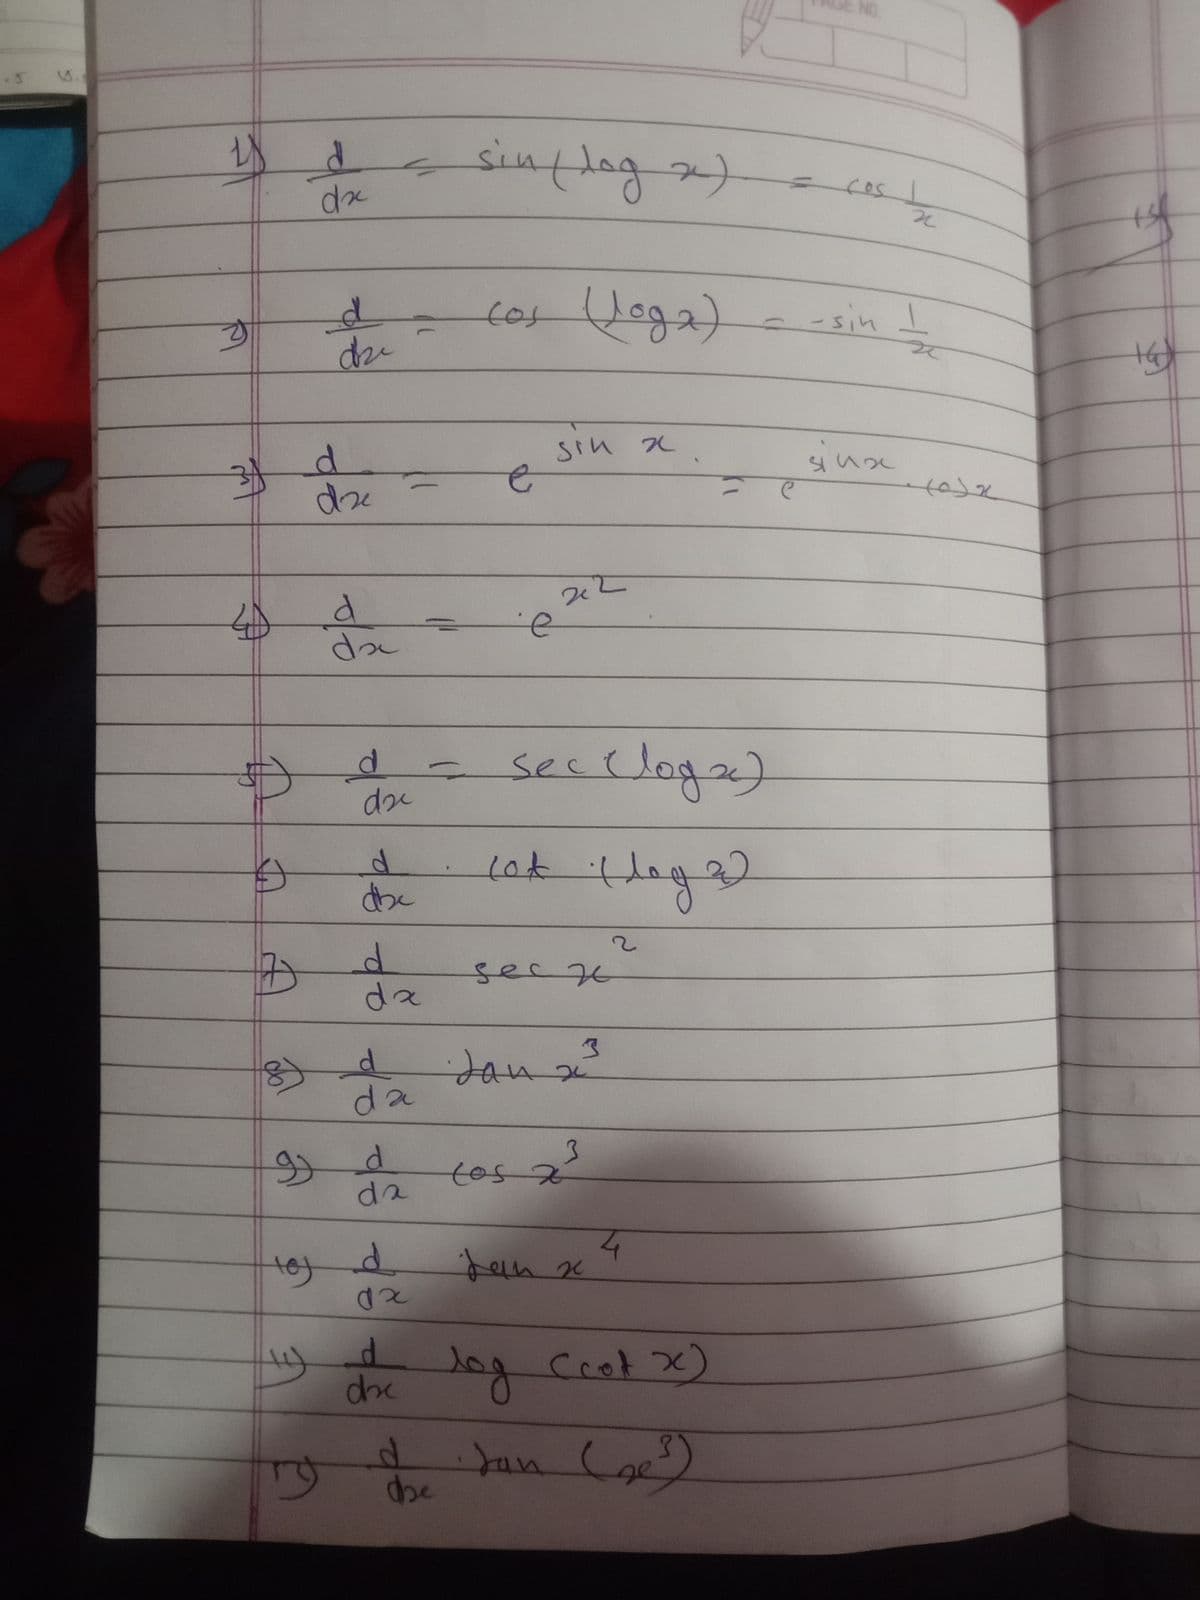 PAGE NO.
1) d/dx = sin(log x) = cos 1/x
2) d/dx = cos (log x) = -sin 1/x
3) d/dx = e^sin x . = e^sinx . cosx
4) d/dx = e^x2
5) d/dx = sec(log x)
6) d/dx . cot (log x)
7) d/dx sec x^2
8) d/dx tan x^3
9) d/dx cos x^3
10) d/dx tan x^4
11) d/dx log (cot x)
12) d/dx tan (x^3)
13)
14)